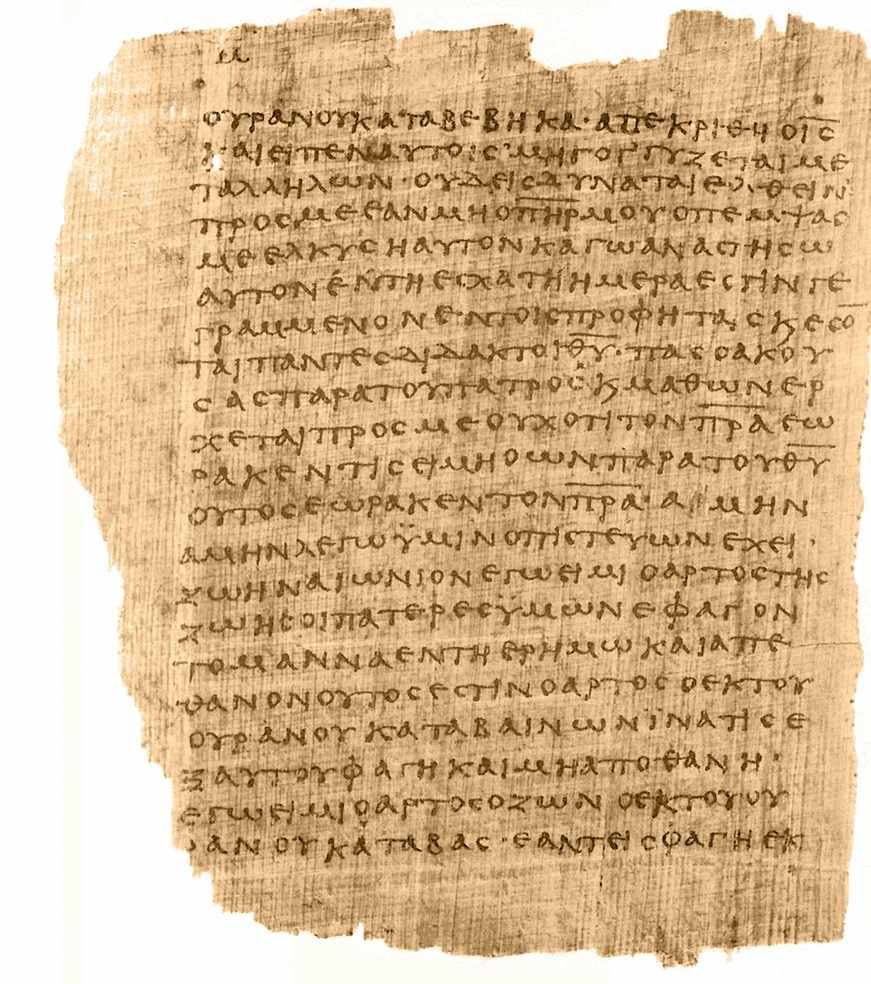 μ
ουρανουκαταβεβηκα· απεκριθη ο ι̅ς̅
και ειπεν αυτοις μη γογγυζεται με
τ αλληλων· ουδεις δυναται ελθειν
προς με εαν μη ο π̅η̅ρ̅ μου ο πεμψας
με ελκυση αυτον καγω αναστησω
αυτον εν τη εσχατη ημερα εστιν γε
γραμμενον εν τοις προφηταις κ εσο̅
ται παντες διδακτοι θ̅υ̅· πας ο ακου
σας παρα του πατρος κ μαθων ερ
χεται προς με ουχ οτι τον π̅ρ̅α̅ εω
ρακεν τις ει μη ο ων παρα του θ̅υ̅
ουτος εωρακεν τον π̅ρ̅α̅· αμην
αμην λεγω ϋμιν ο πιστευων εχει·
ζωην αιωνιον εγω ειμι ο αρτος της
ζωης οι πατερες ϋμων εφαγον
το μαννα εν τη ερημω και απε
θανον ουτος εστιν ο αρτος ο εκ του
ουρανου καταβαινων ϊνα τις ε
ξ αυτου φαγη και μη αποθανη·
εγω ειμι ο αρτος ο ζων ο εκ του ου
ρανου καταβας· εαν τεις φαγη εκ